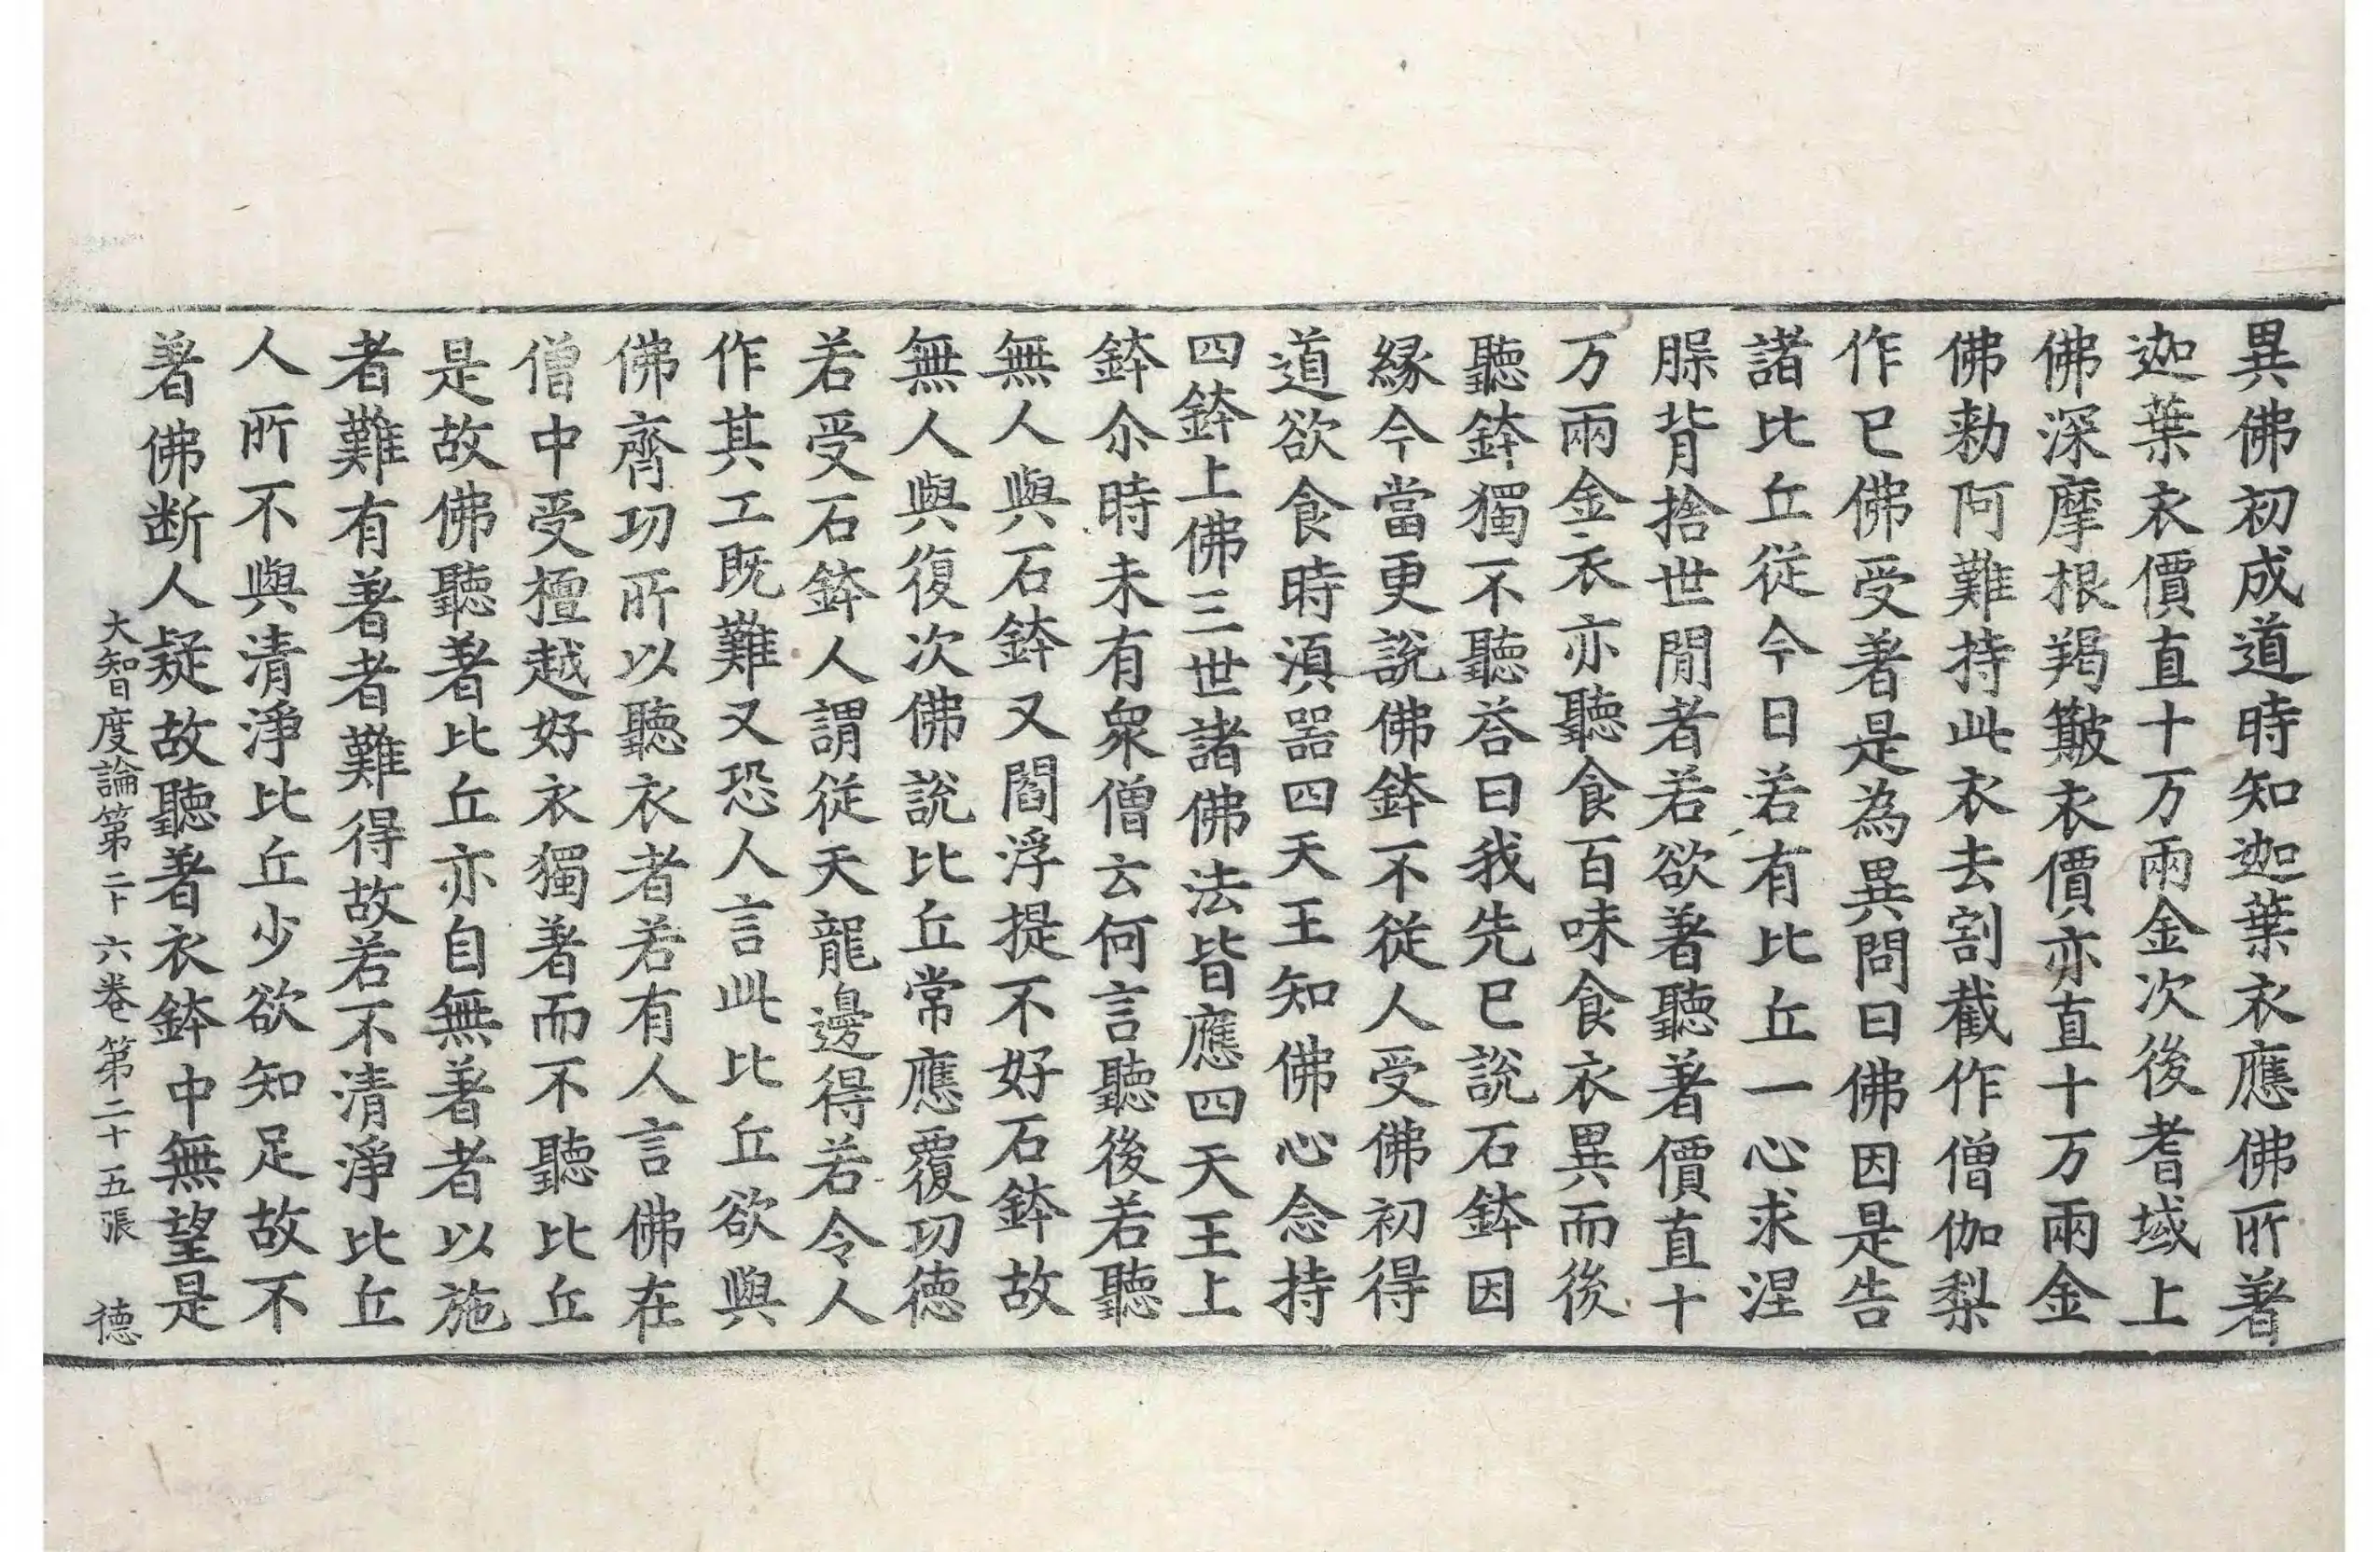 異佛初成道時知迦葉衣應佛所著
迦葉衣價直十万兩金次後耆域上
佛深摩根羯簸衣價亦直十万兩金
佛勑阿難持此衣去割截作僧伽梨
作已佛受著是為異問曰佛因是告
諸比丘從今日若有比丘一心求涅
脲背捨世閒者若欲著聽著價直十
万兩金衣亦聽食百味食衣異而後
聽鉢獨不聽荅曰我先已說石鉢因
緣今當更說佛鉢不從人受佛初得
道欲食時湏噐四天王知佛心念持
四鉢上佛三世諸佛法皆應四天王上
鉢尒時未有衆僧云何言聽後若聽
無人與石鉢又閻浮提不好石鉢故
無人與復次佛說比丘常應覆功德
若受石鉢人謂從天龍邊得若令人
作其工既難又恐人言此比丘欲與
佛齊功所以聽衣者若有人言佛在
僧中受檀越好衣獨著而不聽比丘
是故佛聽著比丘亦自無著者以施
者難有著者難得故若不清淨比丘
人所不與清淨比丘少欲知足故不
著佛断人疑故聽著衣鉢中無望是
大智度論第二十六卷第二十五張 德